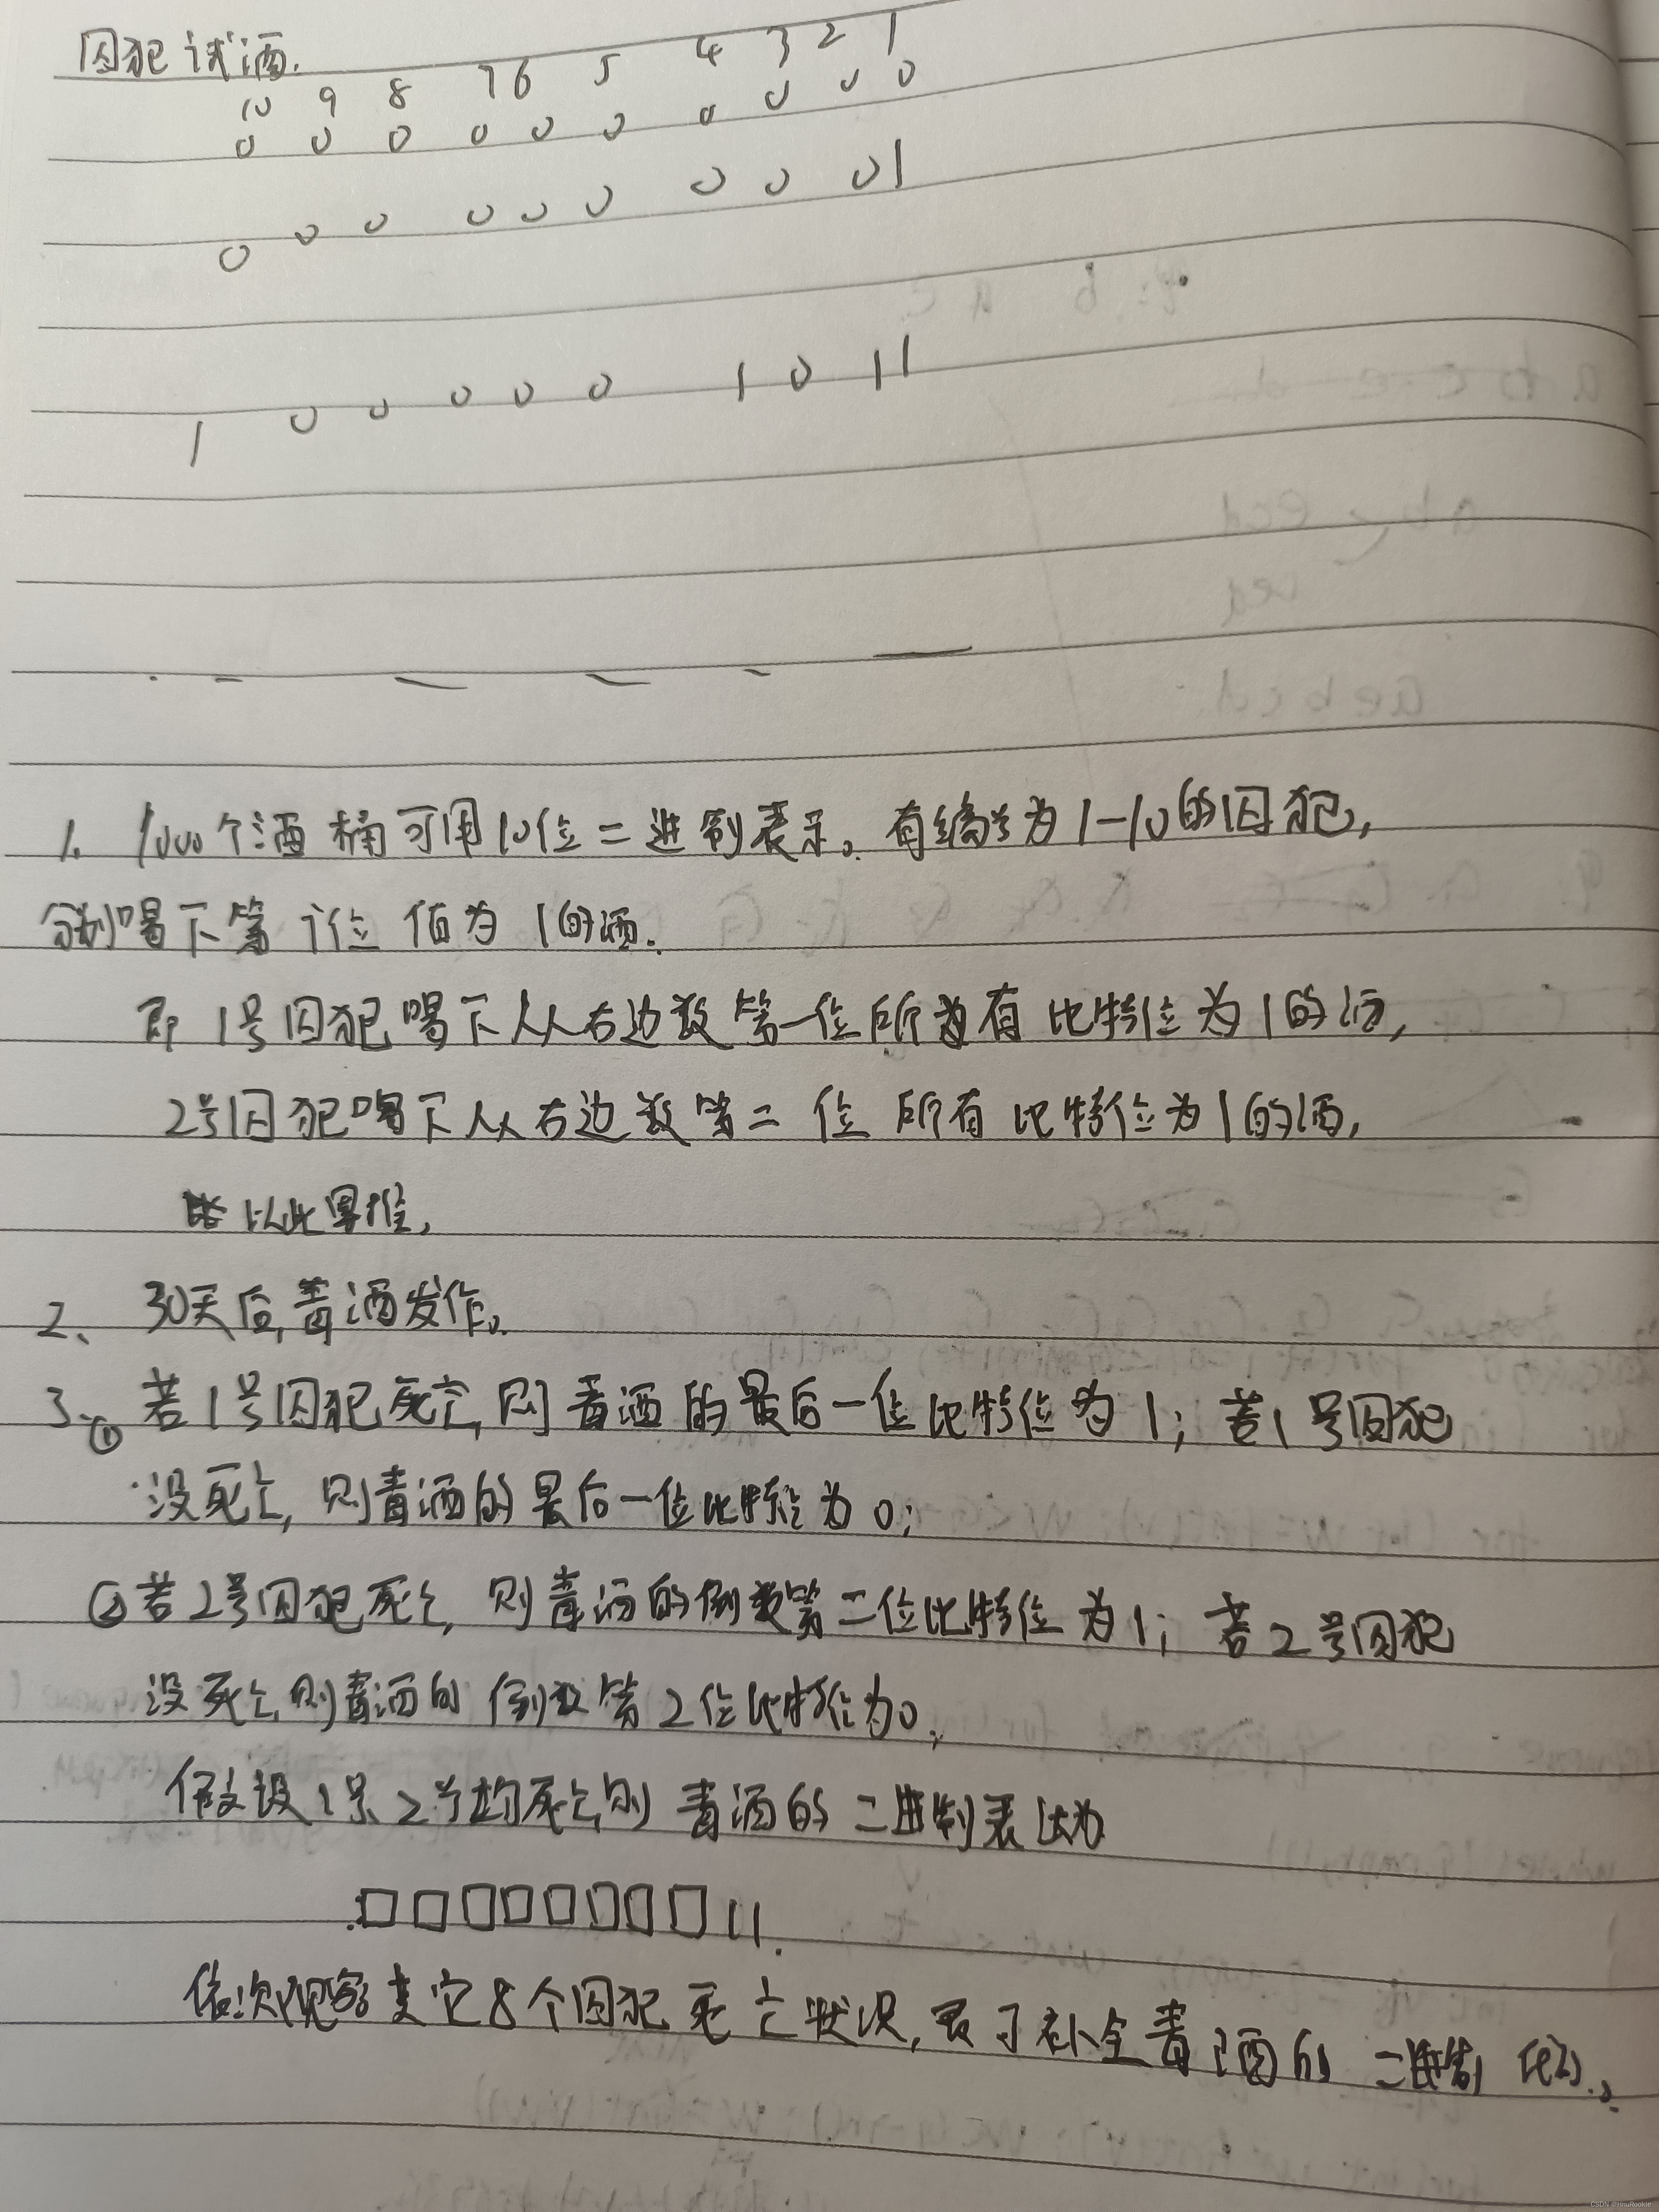 囚犯试酒.
10 9 8 7 6 5 4 3 2 1
0 0 0 0 0 0 0 0 0 0
0 0 0 0 0 0 0 0 0 1
1 0 0 0 0 0 1 0 1 1
1. 1000个酒桶可用10位二进制表示。有编号为1-10的囚犯,
分别喝下第i位值为1的酒.
即1号囚犯喝下从右边数第一位所有比特位为1的酒,
2号囚犯喝下从右边数第二位所有比特位为1的酒,
以此类推,
2、30天后,毒酒发作。
3、① 若1号囚犯死亡,则毒酒的最后一位比特位为1; 若1号囚犯
没死亡,则毒酒的最后一位比特位为0;
②若2号囚犯死亡,则毒酒的倒数第二位比特位为1; 若2号囚犯
没死亡,则毒酒的倒数第2位比特位为0;
假设1号、2号均死亡,则毒酒的二进制表达为
□□□□□□□□11.
依次观察其它8个囚犯死亡状况,即可补全毒酒的二进制
CSDN @nnuRookie